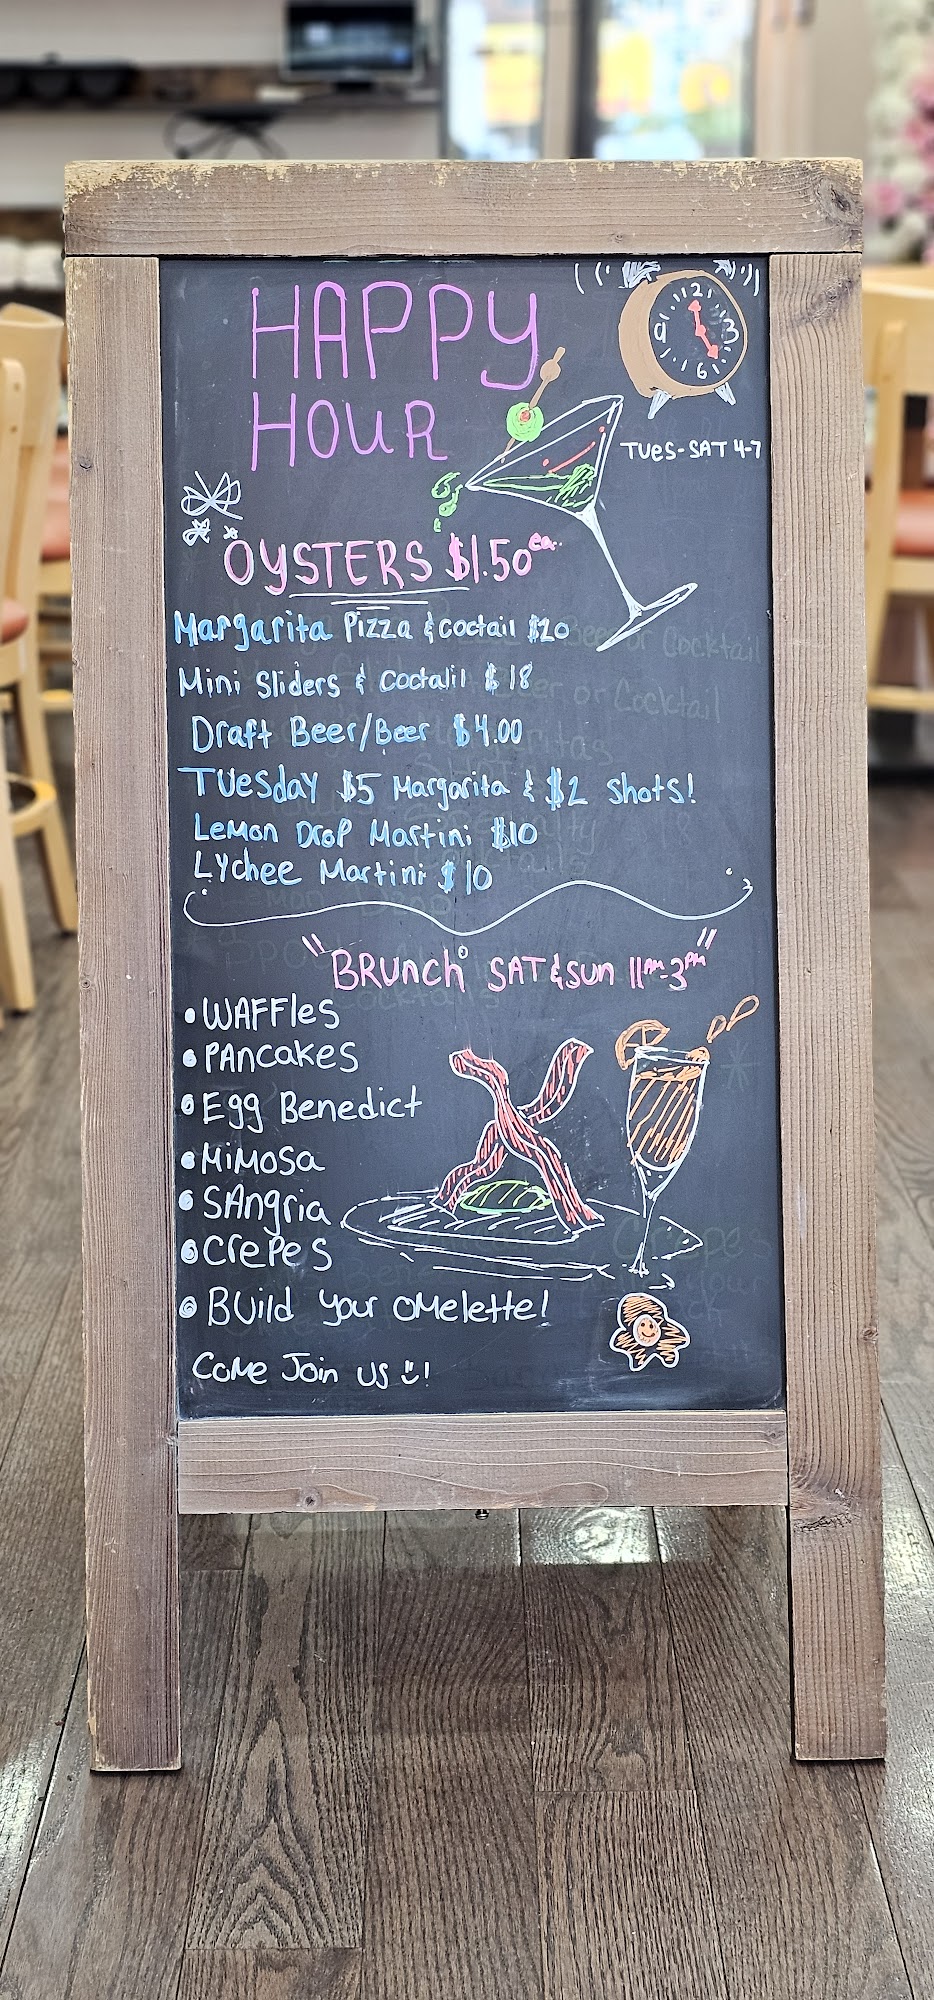 HAPPY
HOUR
12
9 3
6
TUES-SAT 4-7
OYSTERS $1.50 ea.
Margarita Pizza & Coctail $20
Mini Sliders & Coctalil $18
Draft Beer/Beer $4.00
TUesday $5 Margarita & $2 Shots!
Lemon Drop Martini $10
Lychee Martini $10
"BRunch" SAT & Sun 11AM-3PM
• WAFFles
• PAncakes
• Egg Benedict
• MiMosa
• SAngria
• CrePes
• BUild your oMelette!
CoMe Join us !